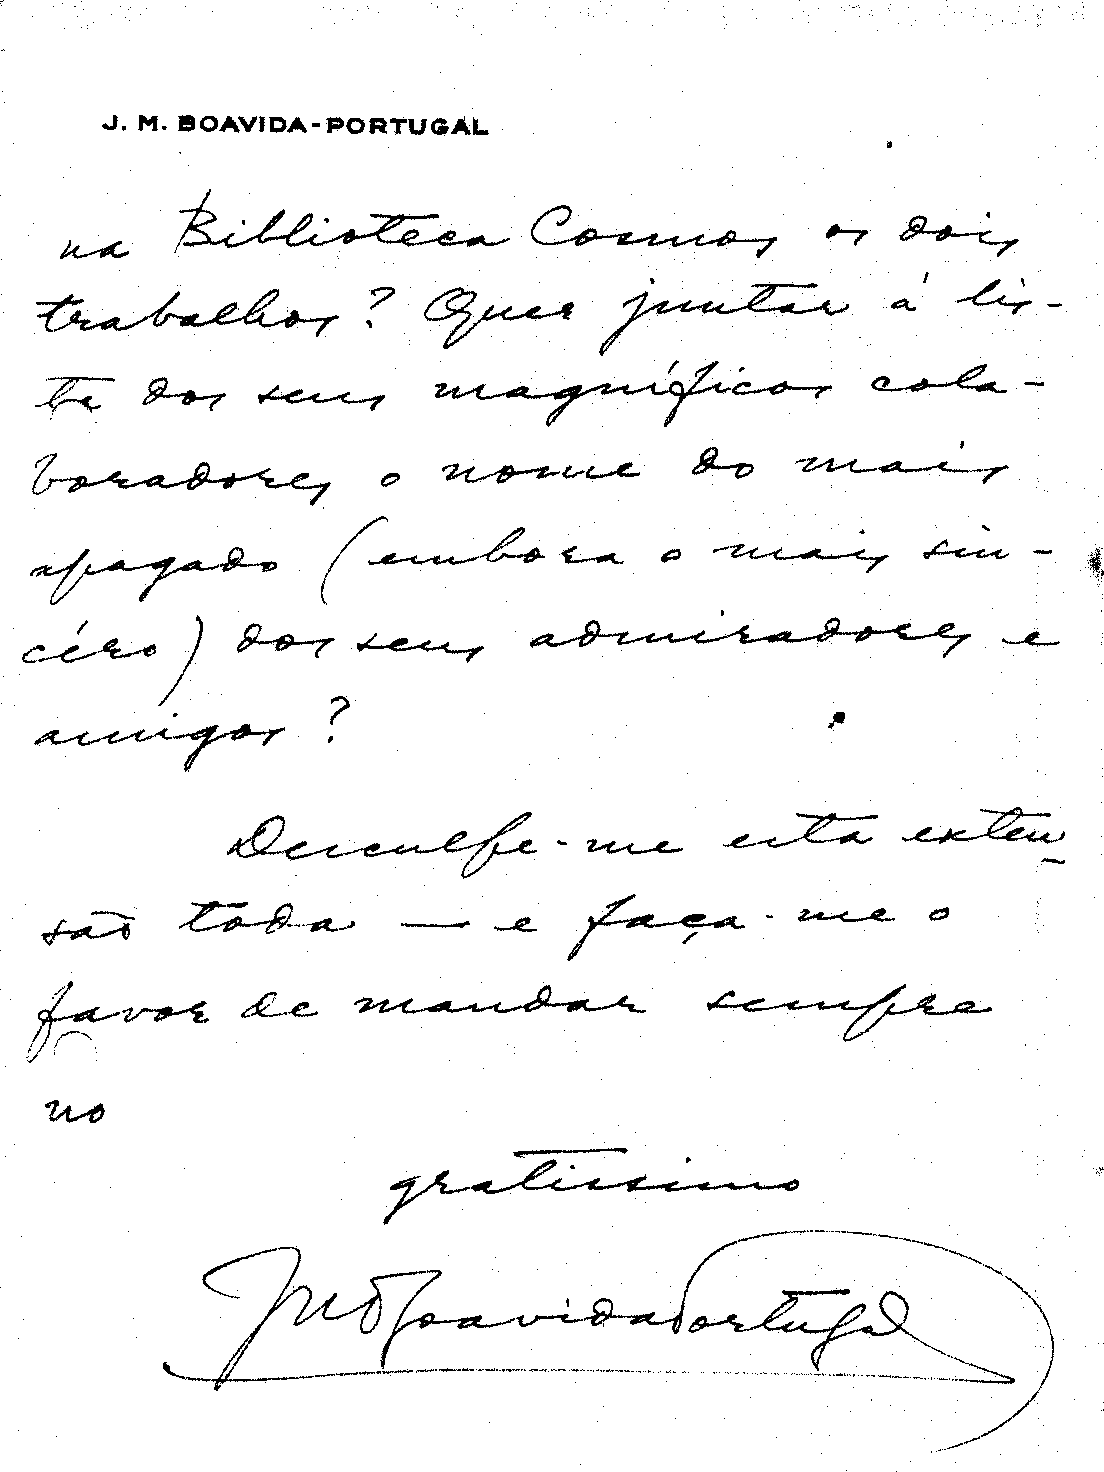 J. M. BOAVIDA-PORTUGAL
na Biblioteca Cosmos os dois
trabalhos? Quer juntar á lis-
ta dos seus magníficos cola-
boradores o nome do mais
apagado (embora o mais sin-
céro) dos seus admiradores e
amigos?
Desculpe-me esta exten-
são toda — e faça-me o
favor de mandar sempre
no
gratissimo
JMBoavidaPortugal